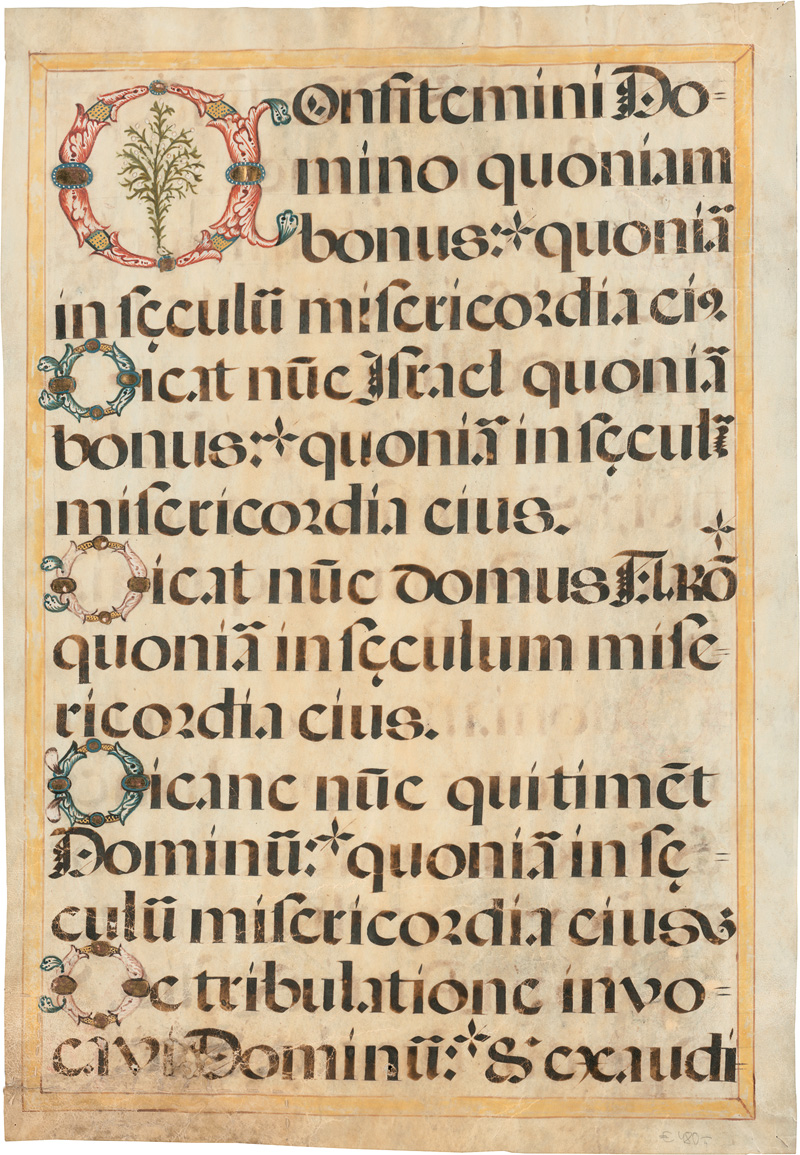 Confitemini Do=
mino quoniam
bonus:+quoniã
in sęculũ misericordia ei9
Dicat nũc Israel quoniã
bonus:+quoniã in sęculũ
misericordia eius.
Dicat nũc domus Aarõ +
quoniã in sęculum mise=
ricordia eius.
Dicant nũc qui timẽt
Dominũ:+quoniã in sę=
culũ misericordia eius
De tribulatione invo=
cavi Dominũ:+& exaudi
€ 480.-